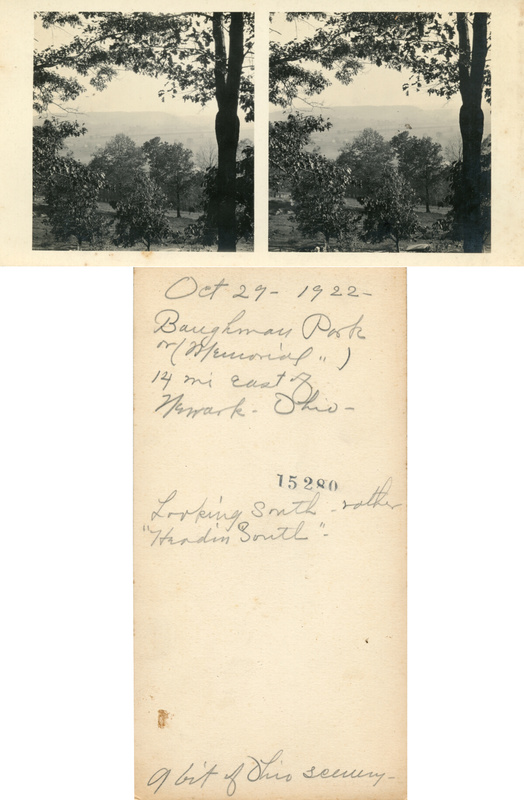 Oct 29- 1922-
Baughman Park
or (Memorial " )
14 mi east of
Newark - Ohio -
15280
Looking South - rather
"Headin South" -
A bit of Ohio scenery -